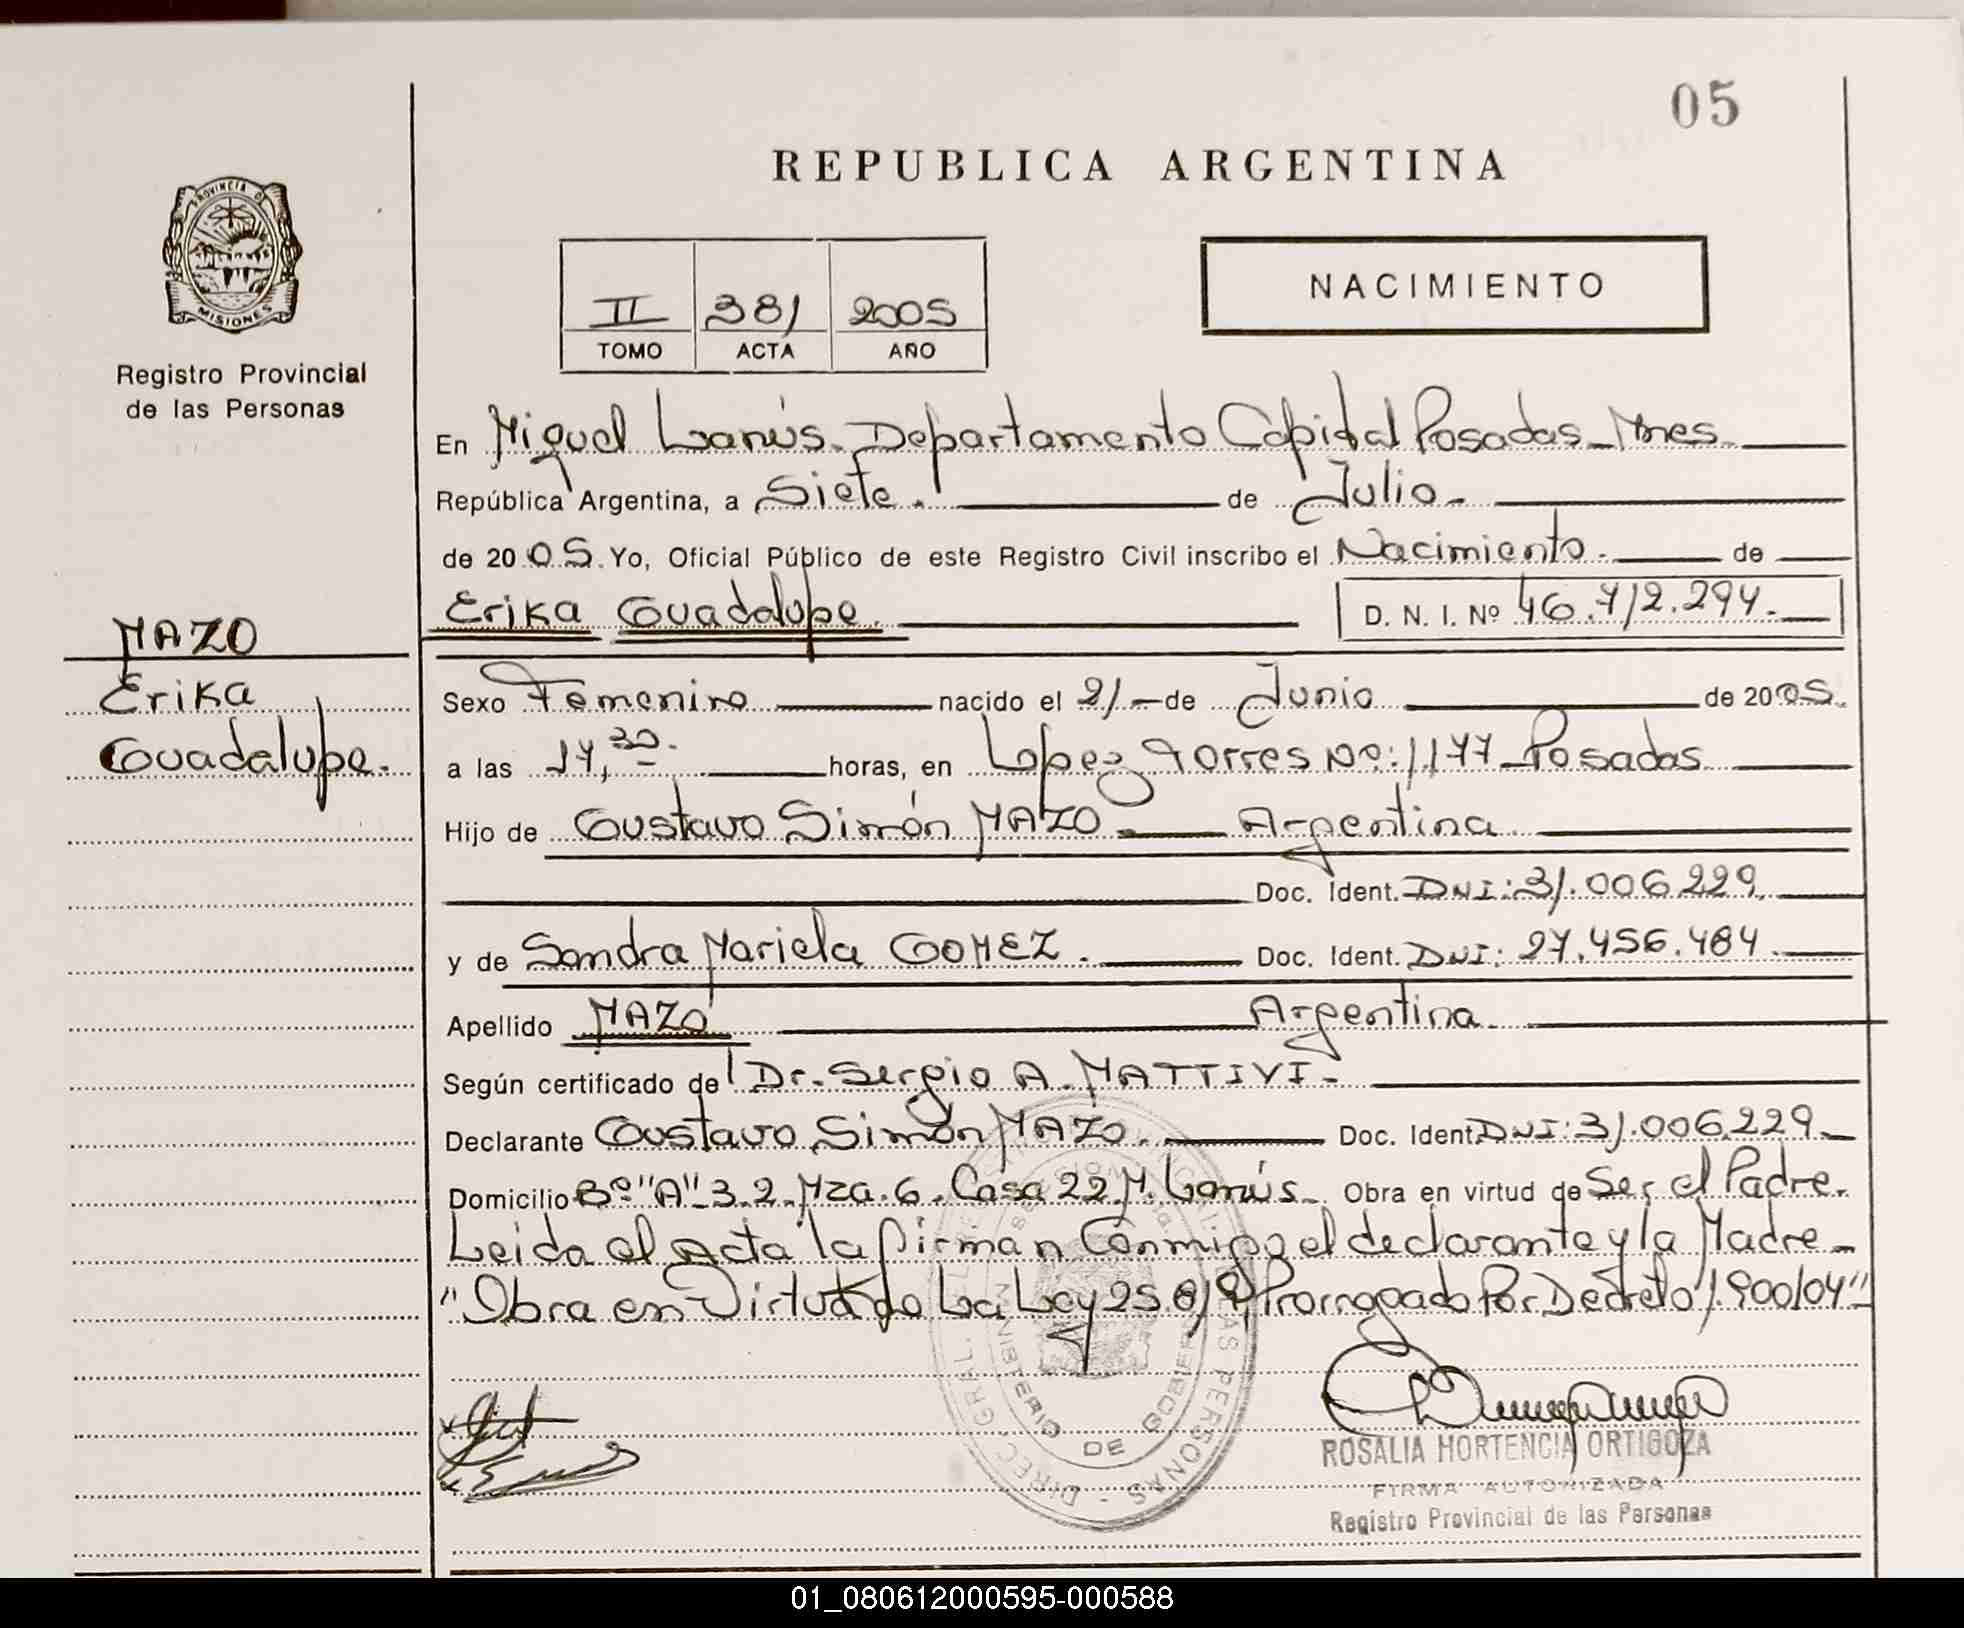 05
REPUBLICA ARGENTINA
PROVINCIA DE
MISIONES
Registro Provincial
de las Personas
II 381 2005
TOMO ACTA AÑO
NACIMIENTO
En Miguel Lanús. Departamento Capital Posadas - Mnes.
República Argentina, a Siete. de Julio.
de 2005. Yo, Oficial Público de este Registro Civil inscribo el Nacimiento. de
Erika Guadalupe. D. N. I. Nº 46.712.294.
MAZO
Erika
Guadalupe.
Sexo Femenino nacido el 21 - de Junio de 2005.
a las 17,30. horas, en Lopez Torres Nº: 1177 - Posadas
Hijo de Gustavo Simón MAZO. Argentina
Doc. Ident. DNI: 31.006.229.
y de Sandra Mariela GOMEZ. Doc. Ident. DNI: 27.456.484.
Apellido MAZO Argentina
Según certificado de Dr. Sergio A. MATTIVI -
Declarante Gustavo Simón MAZO. Doc. Ident. DNI: 31.006.229 -
Domicilio Bº "A" 3.2. Mza. 6. Casa 22 M. Lanús - Obra en virtud de Ser el Padre.
Leida el Acta la firman Conmigo el declarante y la Madre -
"Obra en Virtud de La Ley 25.819 Prorrogado Por Decreto 1.900/04" -
MINISTERIO DE GOBIERNO
ROSALIA HORTENCIA ORTIGOZA
FIRMA AUTORIZADA
Registro Provincial de las Personas
01_080612000595-000588